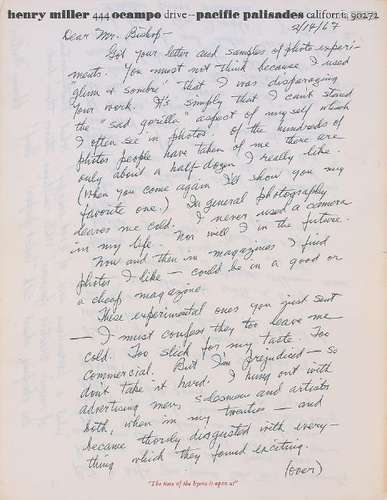 henry miller 444 ocampo drive—pacific palisades california 90272
2/14/67
Dear Mr. Bishop —
Got your letter and samples of photo experi-
ments. You must not think because I used
"glum & sombre" that I was disparaging
your work. It's simply that I can't stand
the "sad gorilla" aspect of myself which
I often see in photos. Of the hundreds of
photos people have taken of me there are
only about a half dozen I really like.
(When you come again I'll show you my
favorite one.) In general photography
leaves me cold. I never used a camera
in my life. Nor will I in the future.
Now and then in magazines I find
photos I like — could be in a good or
a cheap magazine.
These experimental ones you just sent
— I must confess they too leave me
cold. Too slick for my taste. Too
commercial. But I'm prejudiced — so
don't take it hard. I hung out with
advertising men, salesmen and artists
both, when in my twenties — and
became thoroly disgusted with every-
thing which they found exciting.
(over)
"The time of the hyena is upon us"